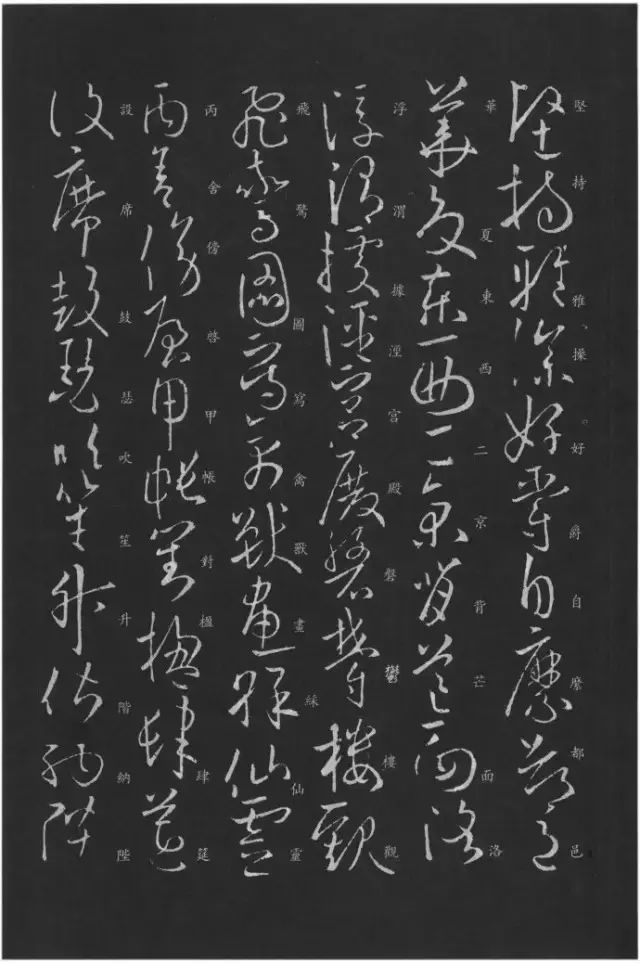 堅持雅操好爵自縻都邑
華夏東西二京背芒面洛
浮渭據涇宮殿磐鬱樓觀
飛驚圖寫禽獸畫綵仙靈
丙舍傍啓甲帳對楹肆筵
設席鼓瑟吹笙升階納陛